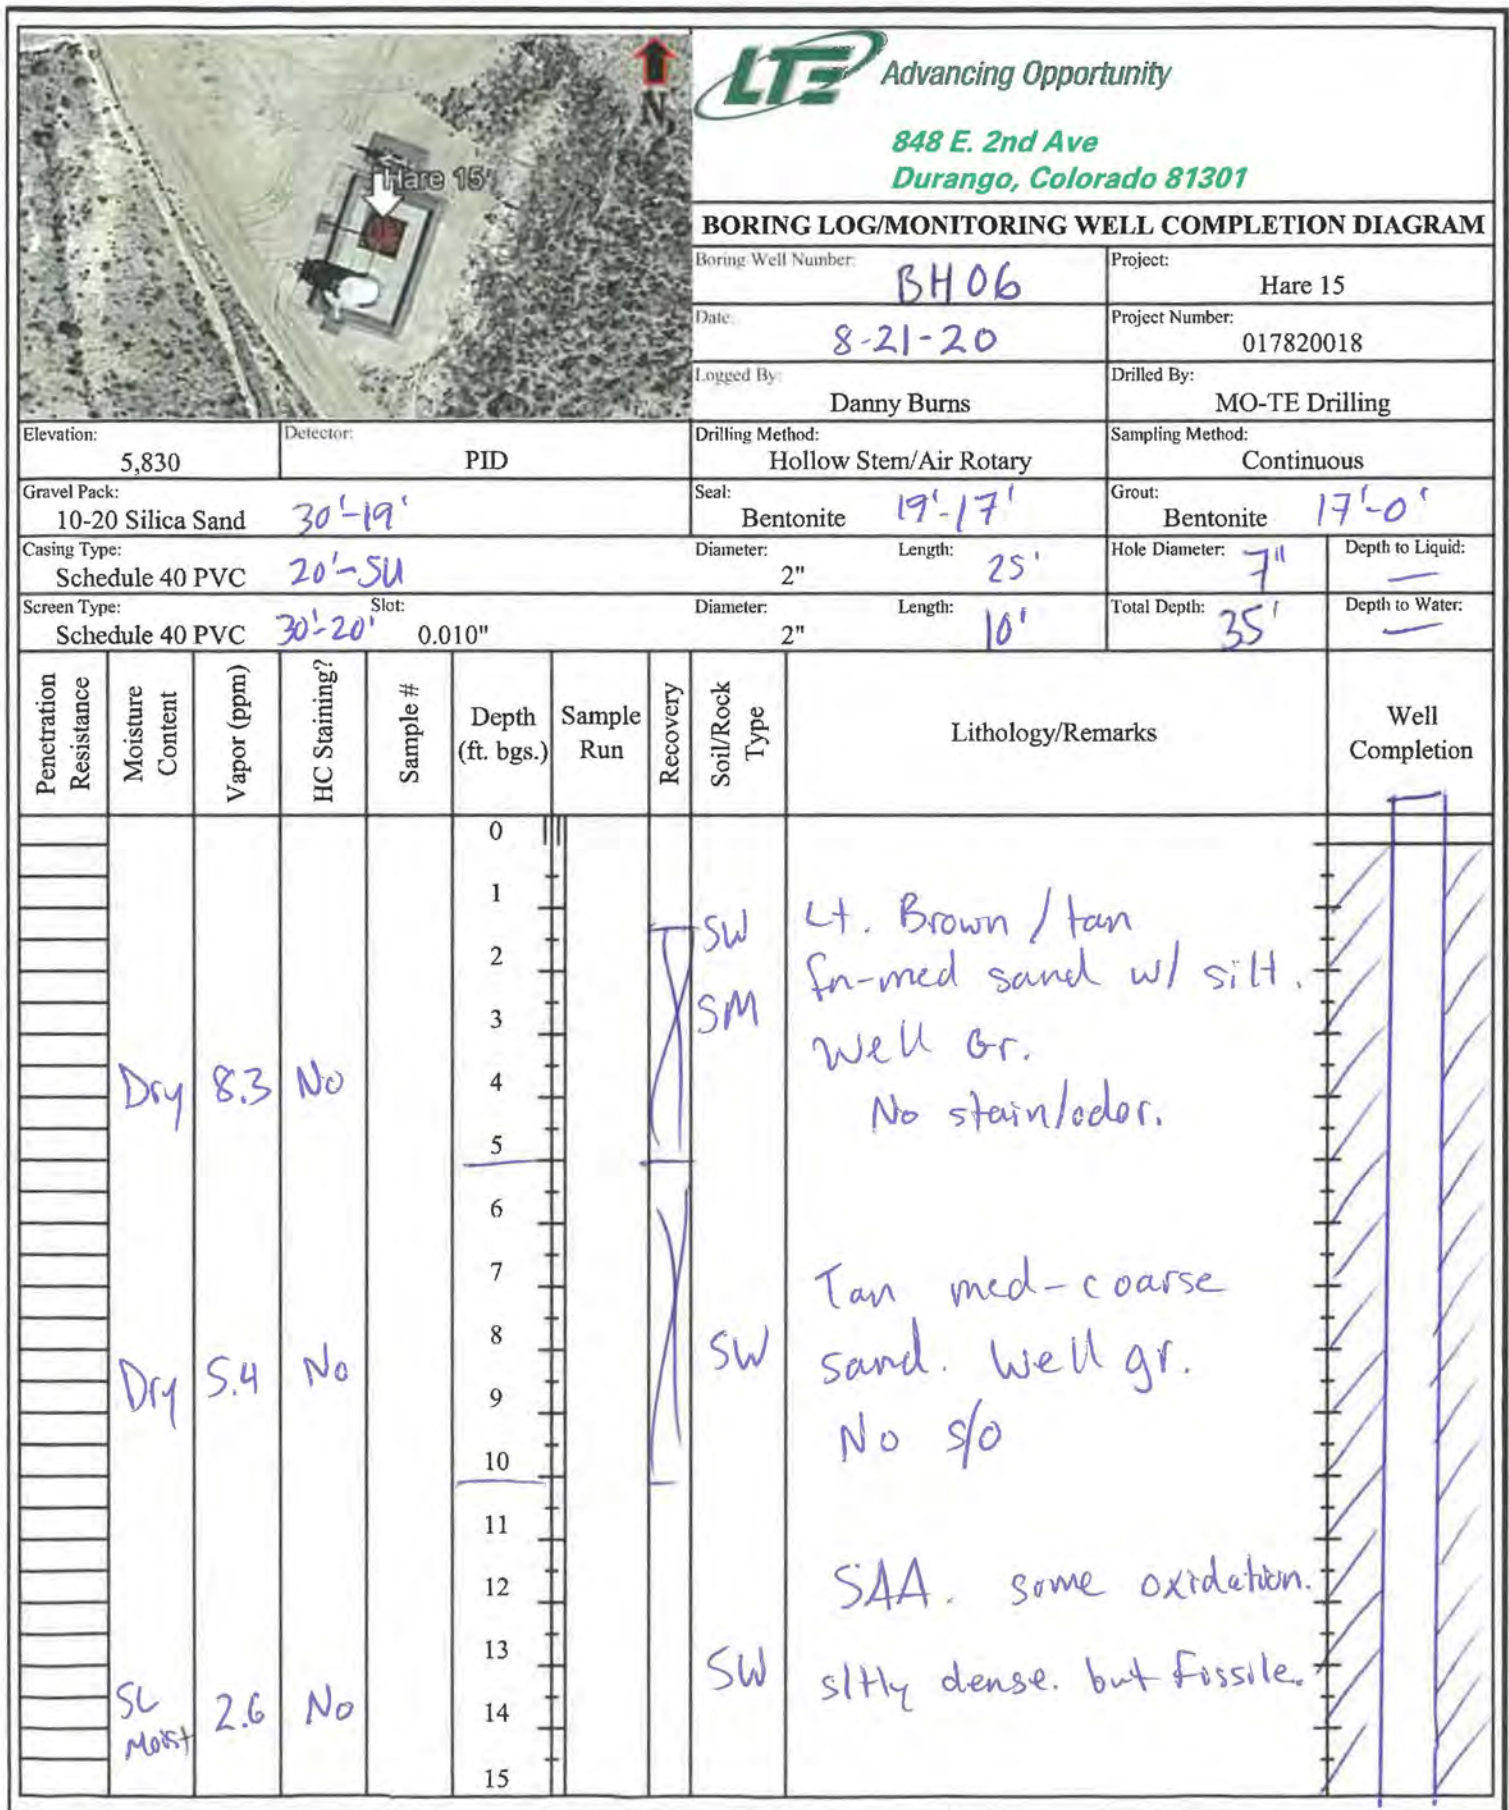 Hare 15
N
LTE Advancing Opportunity
848 E. 2nd Ave
Durango, Colorado 81301
BORING LOG/MONITORING WELL COMPLETION DIAGRAM
Boring Well Number: BH06
Project: Hare 15
Date: 8-21-20
Project Number: 017820018
Logged By: Danny Burns
Drilled By: MO-TE Drilling
Elevation: 5,830
Detector: PID
Drilling Method: Hollow Stem/Air Rotary
Sampling Method: Continuous
Gravel Pack: 10-20 Silica Sand 30'-19'
Seal: Bentonite 19'-17'
Grout: Bentonite 17'-0'
Casing Type: Schedule 40 PVC 20'-SU
Diameter: 2"
Length: 25'
Hole Diameter: 7"
Depth to Liquid: —
Screen Type: Schedule 40 PVC 30'-20'
Slot: 0.010"
Diameter: 2"
Length: 10'
Total Depth: 35'
Depth to Water: —
Penetration Resistance
Moisture Content
Vapor (ppm)
HC Staining?
Sample #
Depth (ft. bgs.)
Sample Run
Recovery
Soil/Rock Type
Lithology/Remarks
Well Completion
0
1
SW Lt. Brown / tan
2 fn-med sand w/ silt.
3 SM
Well Gr.
Dry 8.3 No 4
No stain/odor.
5
6
7 Tan med-coarse
8 SW sand. Well gr.
Dry 5.4 No
9
No s/o
10
11
12 SAA. some oxidation.
13 SW sltly dense. but fissile.
SL Moist 2.6 No 14
15